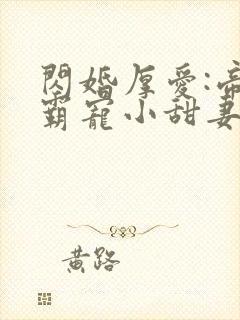 閃婚厚愛:帝
霸寵小甜妻
黄路